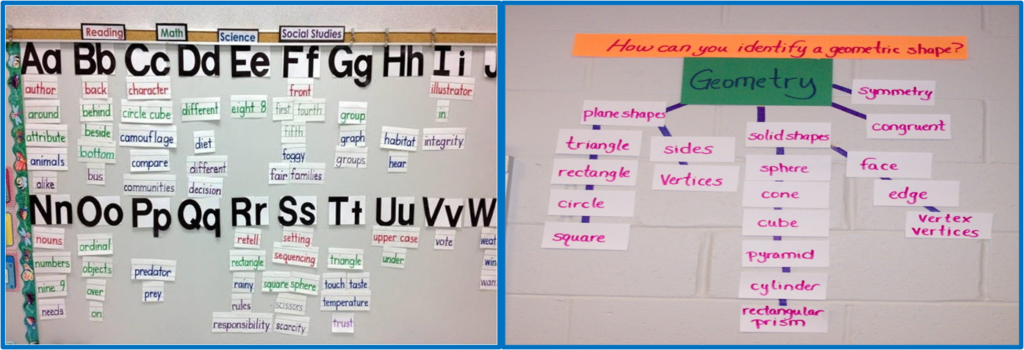 Reading Math Science Social Studies
Aa Bb Cc Dd Ee Ff Gg Hh Ii J
author back character front illustrator
around behind circle cube different eight 8 first fourth group in
attribute beside camouflage diet fifth graph habitat integrity
animals bottom compare different foggy groups hear
alike bus communities decision fair families
Nn Oo Pp Qq Rr Ss Tt Uu Vv W
nouns ordinal predator retell setting triangle upper case vote
numbers objects prey rectangle sequencing touch taste under
nine 9 over rainy square sphere temperature
needs on rules scissors trust
responsibility scarcity
How can you identify a geometric shape?
Geometry
symmetry
congruent
plane shapes
triangle
rectangle
circle
square
sides
vertices
solid shapes
sphere
cone
cube
pyramid
cylinder
rectangular
prism
face
edge
vertex
vertices